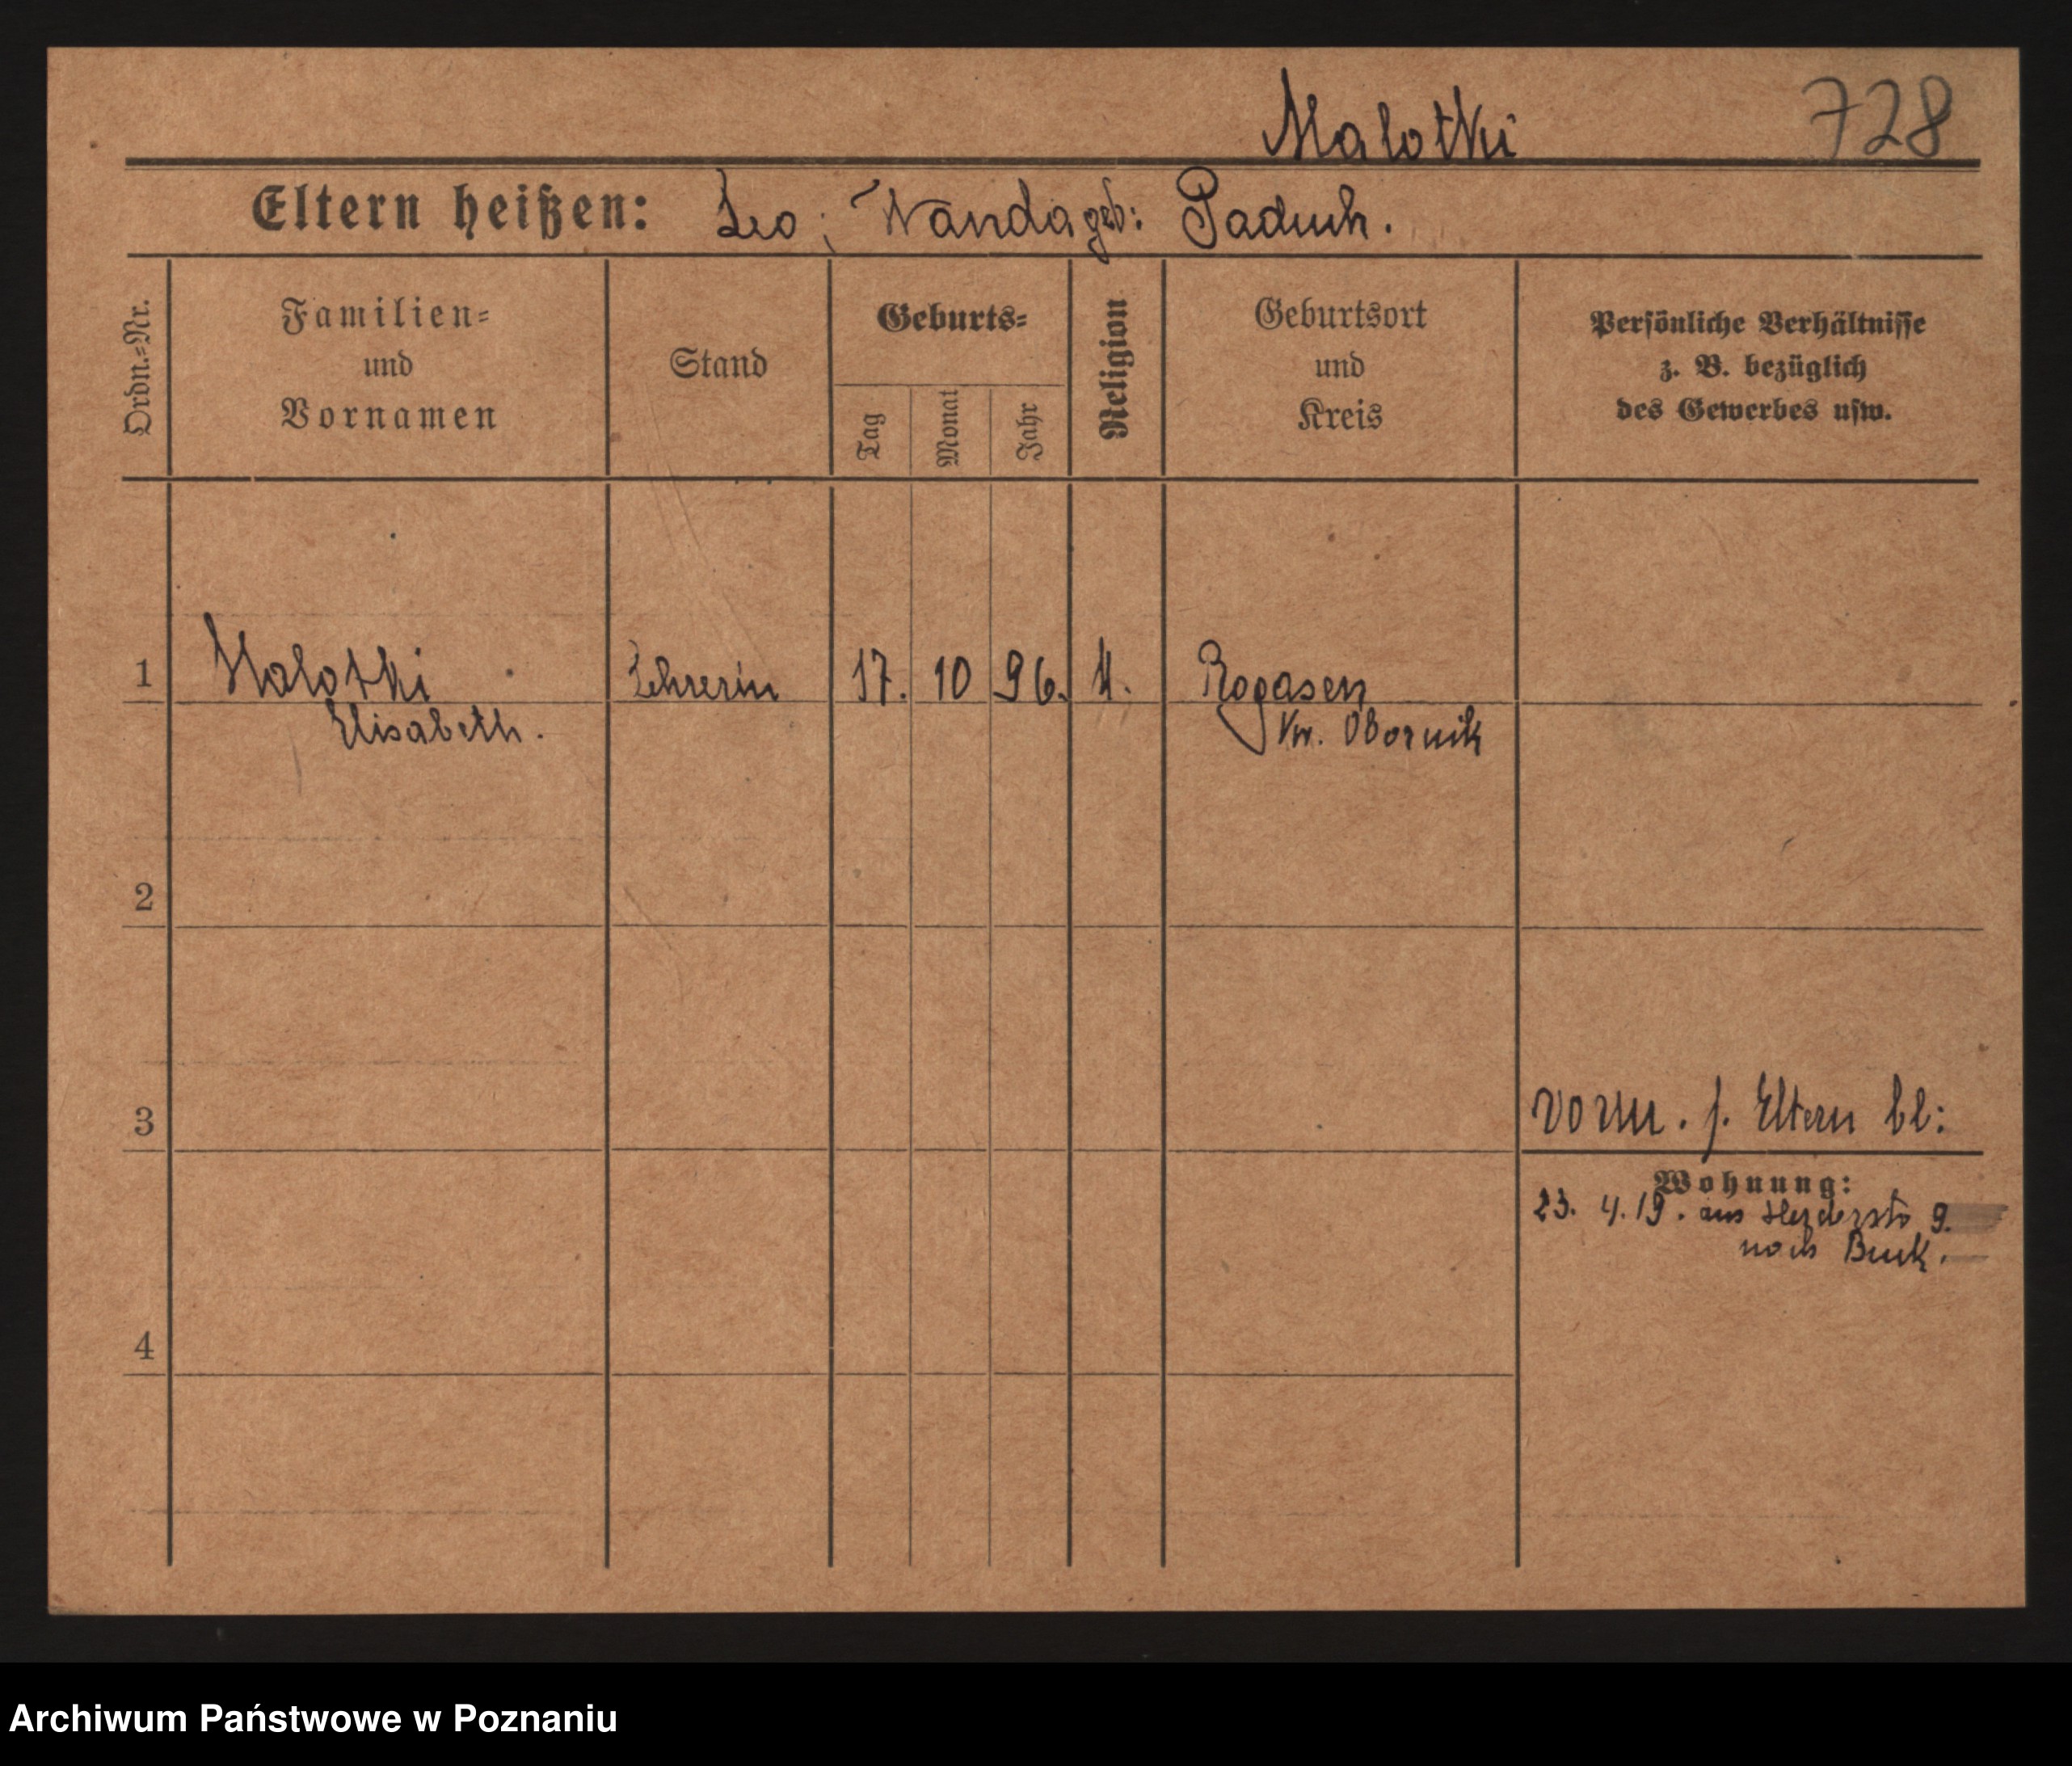 Malotki 728
Eltern heißen: Leo; Wanda geb: Paduch.
Ordn.=Nr.
Familien=
und
Vornamen
Stand
Geburts=
Tag
Monat
Jahr
Religion
Geburtsort
und
Kreis
Persönliche Verhältnisse
z. B. bezüglich
des Gewerbes usw.
1 Malotki Lehrerin 17. 10 96. k. Rogasen
Elisabeth. Kr. Obornik
2
3 vorm. f. Eltern bl:
Wohnung:
23. 4. 19. aus Herderstr 9.
nach Buk.
4
Archiwum Państwowe w Poznaniu